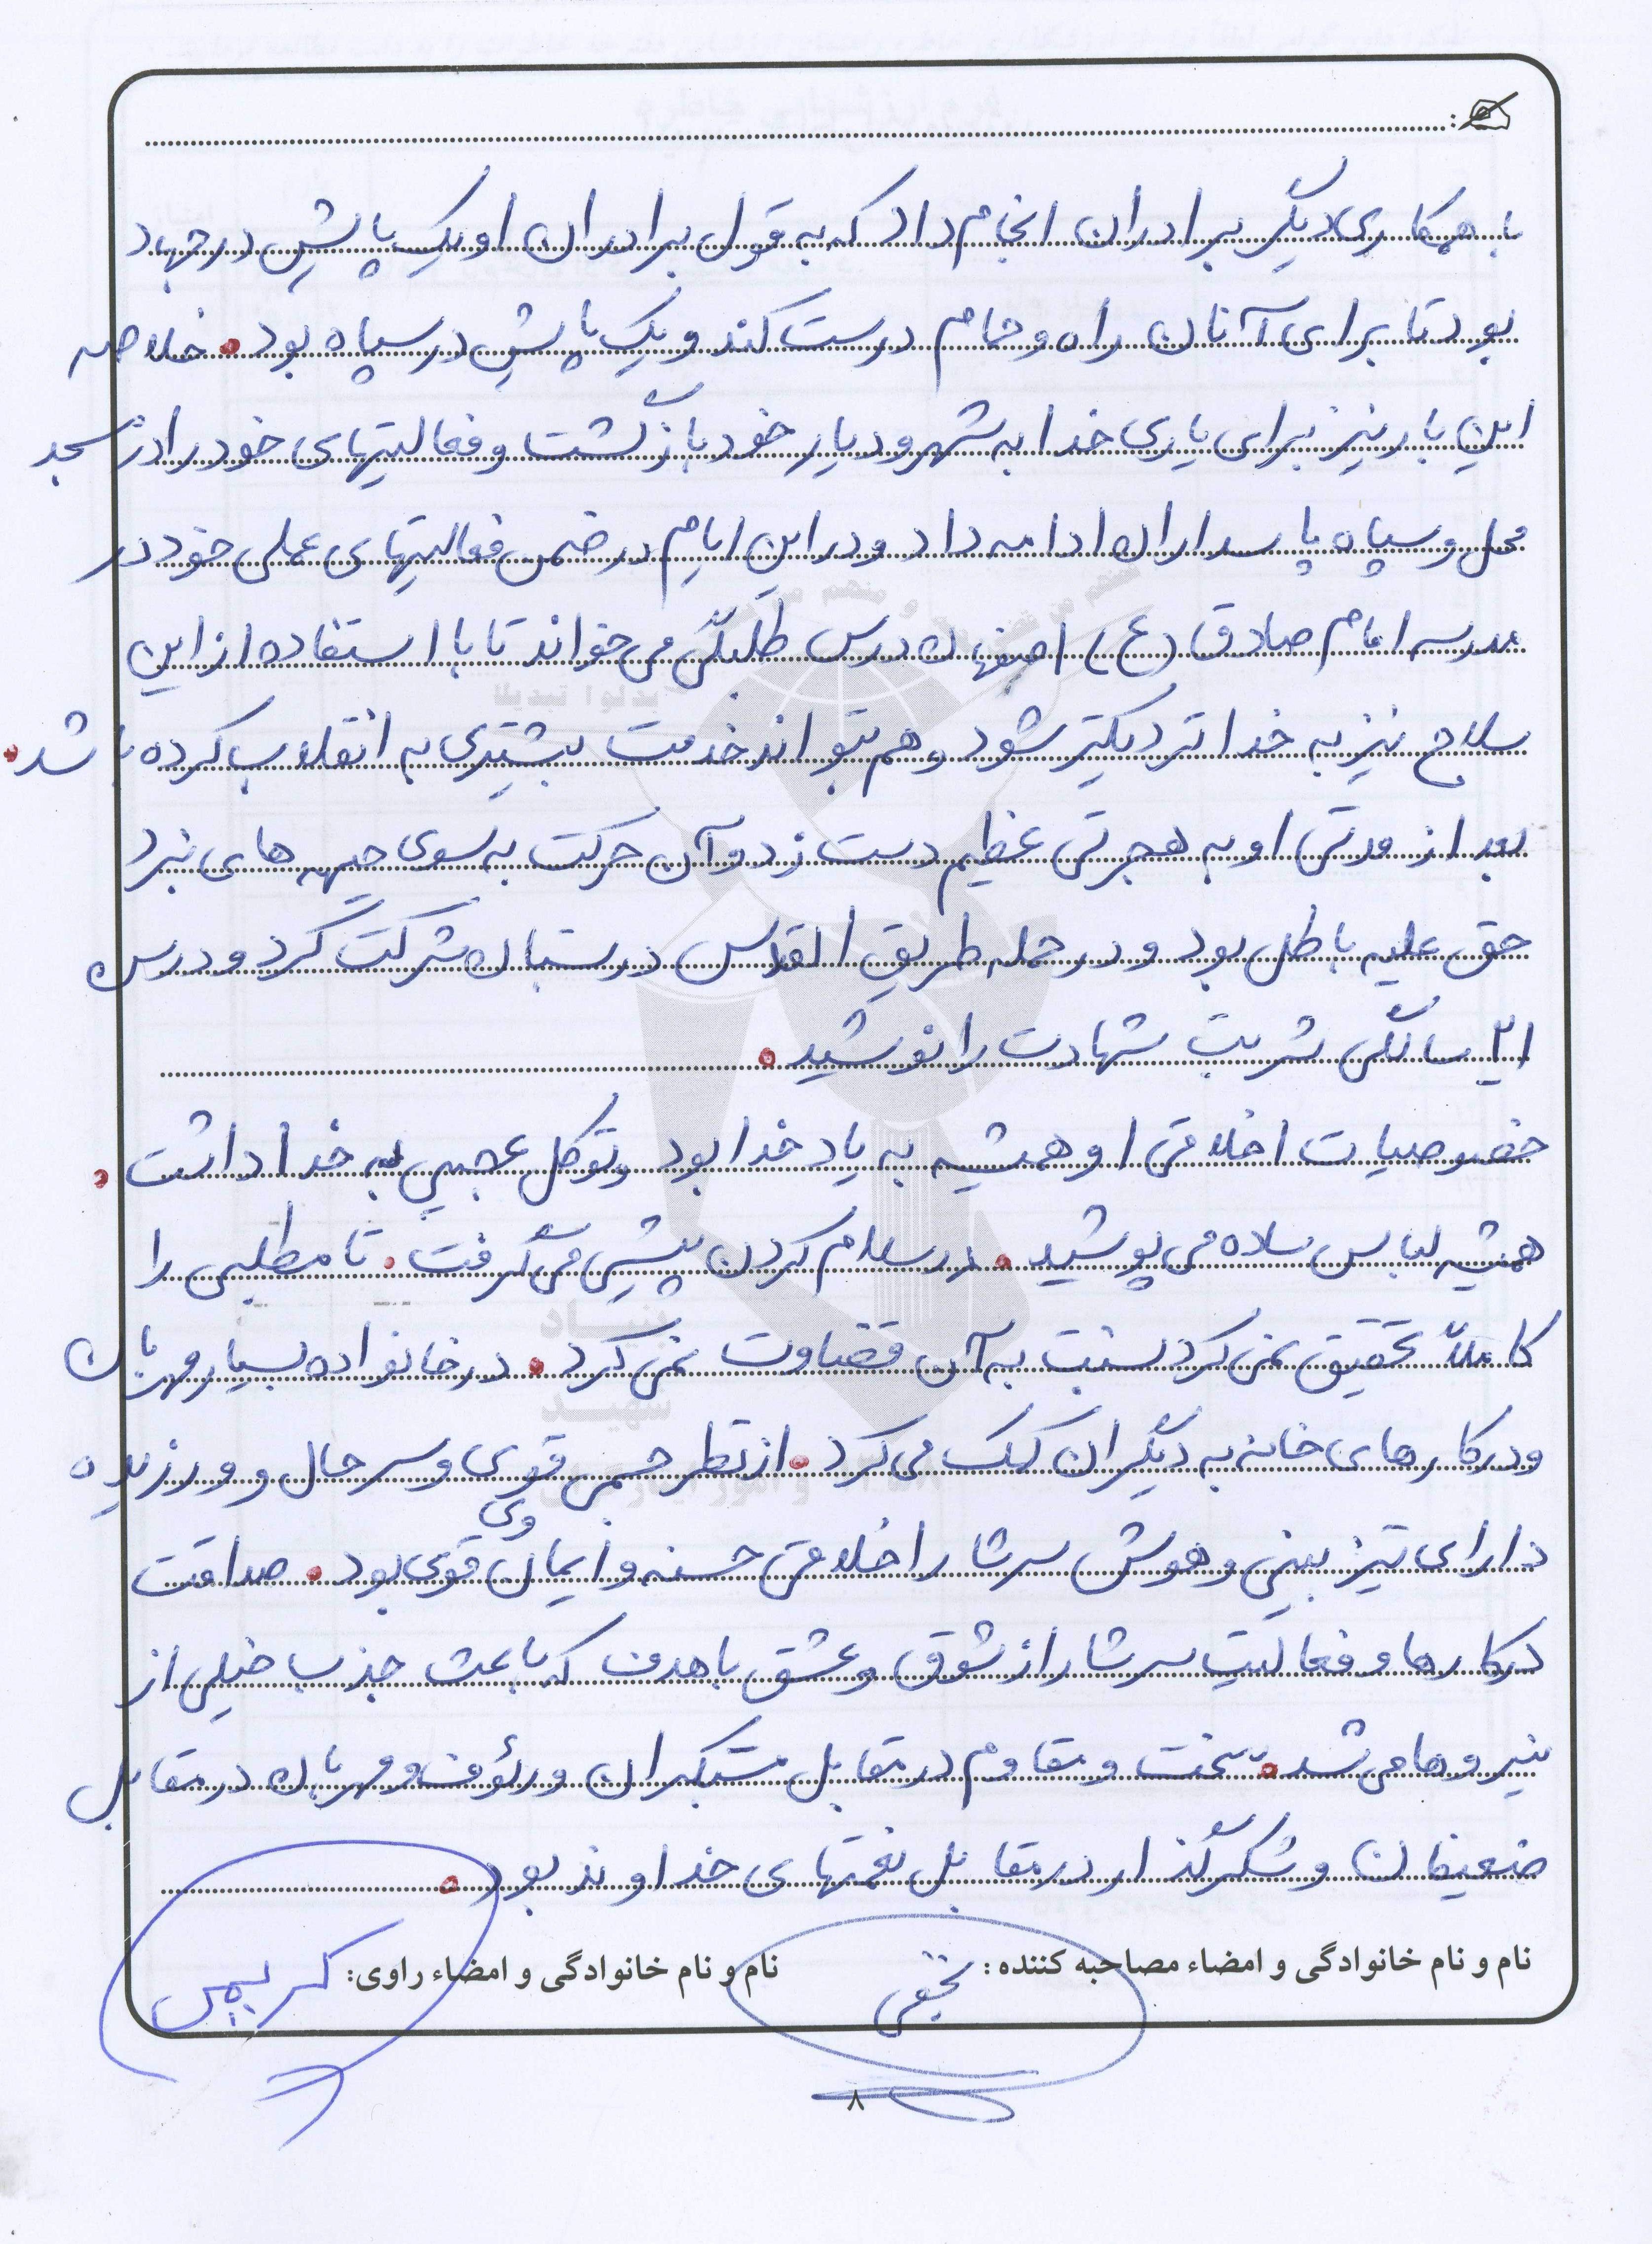 با همکاری دیگر برادران انجام داد که به قول برادران او یک پایش در جهاد
بود تا برای آنان راه و حمام درست کند و یک پایش در سپاه بود. خلاصه
این بار نیز برای یاری خدا به شهر و دیار خود بازگشت و فعالیتهای خود را در مسجد
محل و سپاه پاسداران ادامه داد و در این ایام در ضمن فعالیتهای عملی خود در
مدرسه امام صادق (ع) اصفهان درس طلبگی می خواند تا با استفاده از این
سلاح نیز به خدا نزدیکتر شود و هم بتواند خدمت بیشتری به انقلاب کرده باشد.
بعد از مدتی او به هجرتی عظیم دست زد و آن حرکت به سوی جبهه های نبرد
حق علیه باطل بود و در حمله طریق القدس در بستان شرکت کرد و در سن
۲۱ سالگی شربت شهادت را نوشید.
خصوصیات اخلاقی او همیشه به یاد خدا بود و توکل عجیبی به خدا داشت.
همیشه لباس ساده می پوشید. در سلام کردن پیشی می گرفت. تا مطلبی را
کاملاً تحقیق نمی کرد نسبت به آن قضاوت نمی کرد. در خانواده بسیار مهربان
و در کارهای خانه به دیگران کمک می کرد. از نظر جسمی قوی و سر حال و ورزیده
وی
دارای تیز بینی و هوش سرشار اخلاقی حسنه و ایمان قوی بود. صداقت
در کارها و فعالیت سرشار از شوق و عشق با هدف که باعث جذب خیلی از
نیروها می شد. سخت و مقاوم در مقابل متکبران و رئوف و مهربان در مقابل
ضعیفان و شکرگذار در مقابل نعمتهای خداوند بود.
نام و نام خانوادگی و امضاء مصاحبه کننده: نجفی
نام و نام خانوادگی و امضاء راوی: کریمی
۸
بنیاد
شهید
و امور ایثارگران